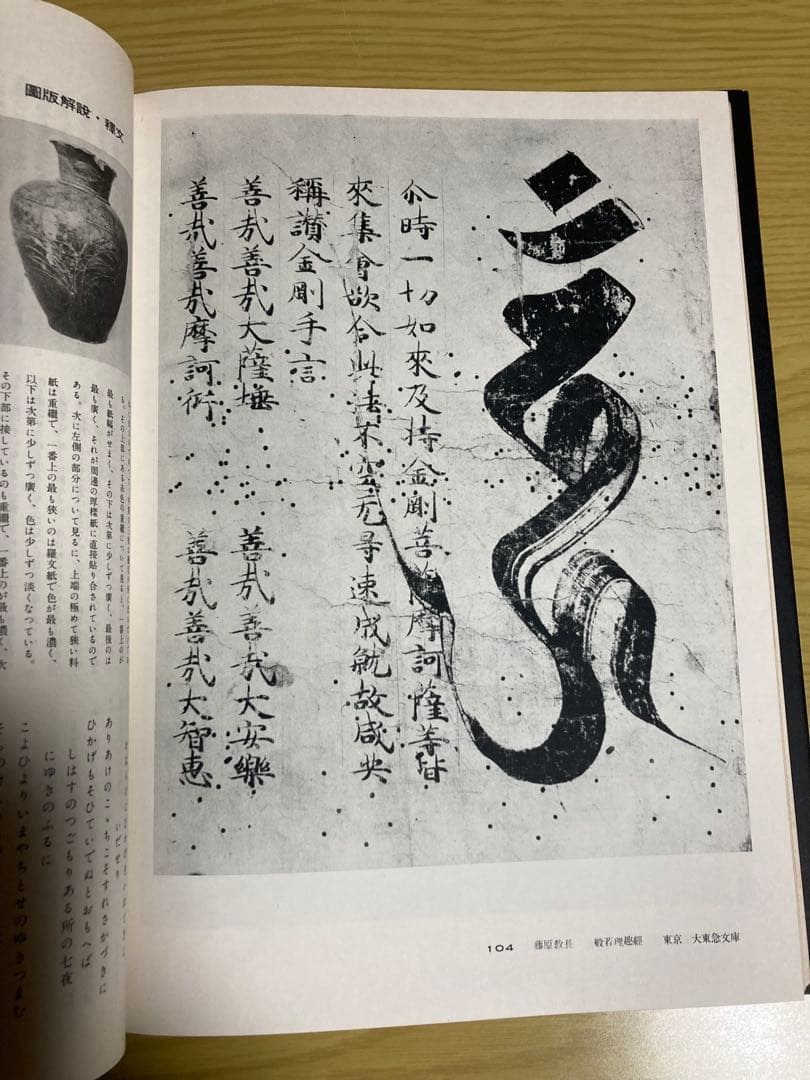 尒時一切如來及持金剛菩薩摩訶薩等皆
來集會欲令此法不空无㝵速成就故咸共
稱讃金剛手言
善哉善哉大薩埵　善哉善哉大安樂
善哉善哉摩訶衍　善哉善哉大智恵
104　藤原敎長　般若理趣經　東京　大東急文庫
圖版解說・釋文
も、その上部にある赤色の重繼について見ると、一番上のが
最も紙幅がせまく、その下は次第に少しずつ廣く、最後のは
最も廣く、それが周邊の厚樣紙に直接貼り合されているので
ある。次に左側の部分について見るに、上端の極めて狹い料
紙は重繼で、一番上の最も狹いのは羅文紙で色が最も濃く、
以下は次第に少しずつ廣く、色は少しずつ淡くなつている。
その下部に接しているのも重繼で、一番上のが最も濃く、次
いだせり
ありあけのこゝちこそすれさかづきに
ひかげもそひていでぬとおもへば
しはすのつごもりある所の七夜
にゆきのふるに
こよひよりいまやちとせのゆきつまむ